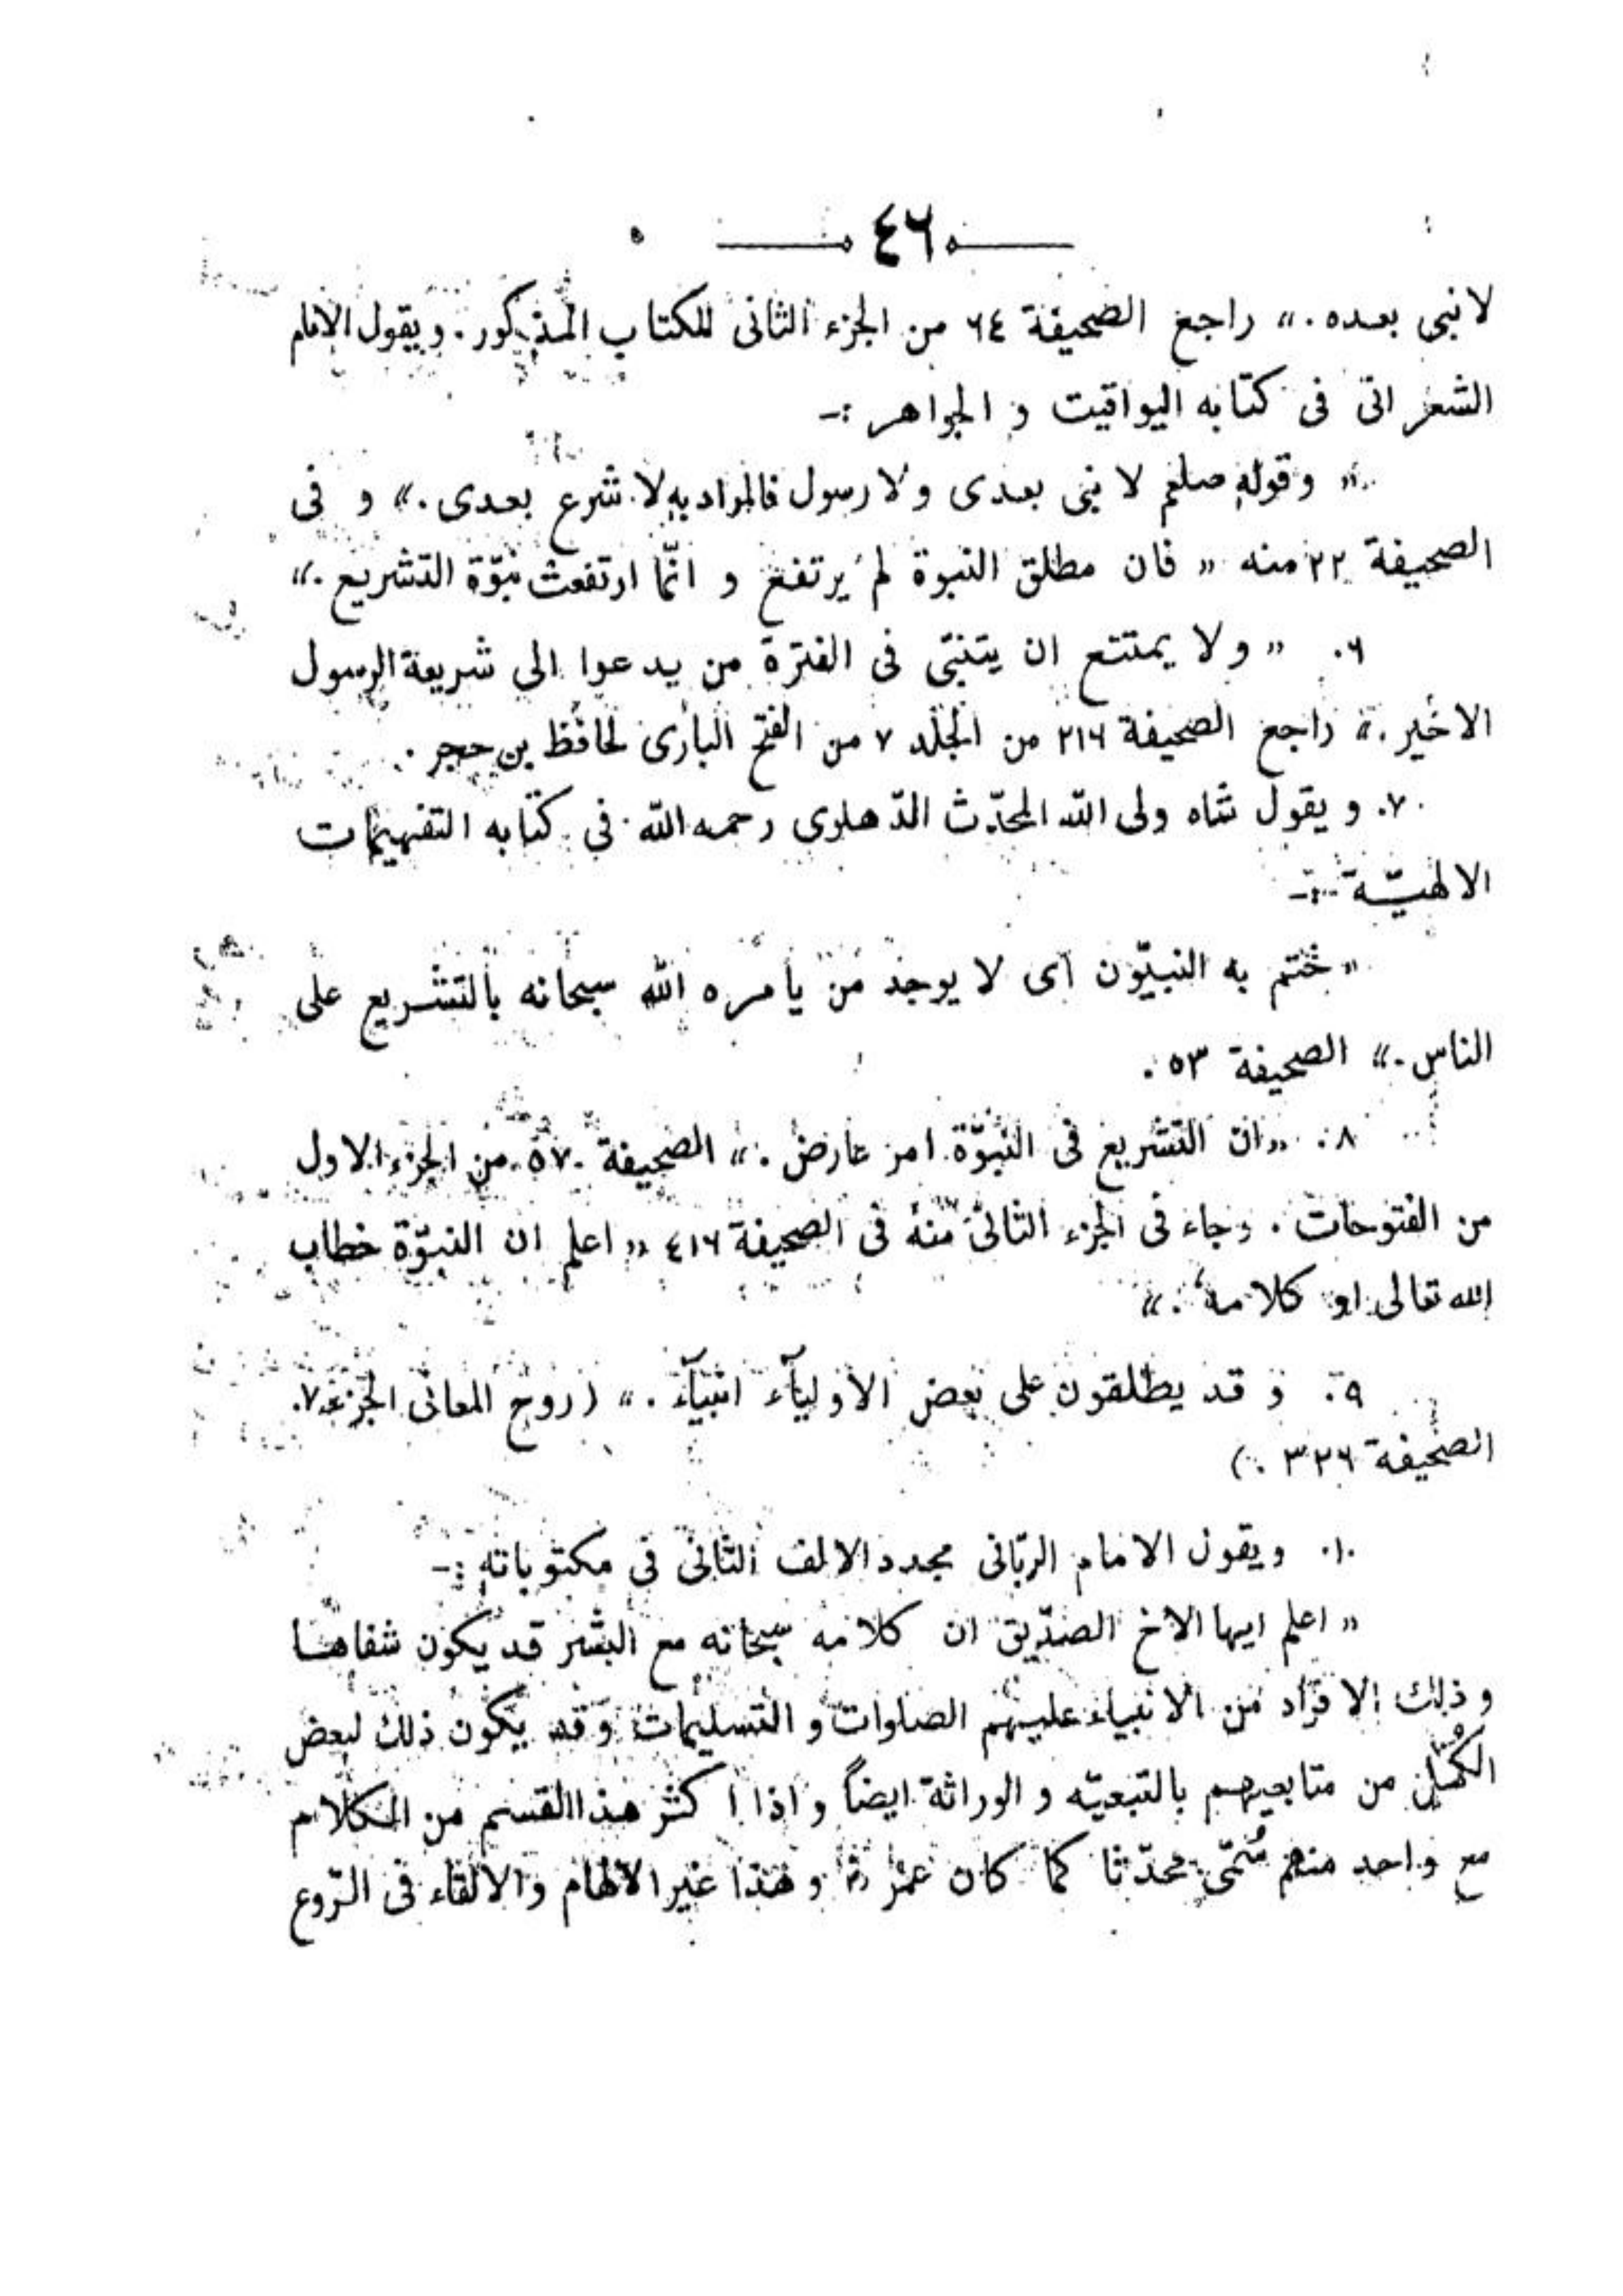 ٤٦
لا نبى بعده.» راجع الصحيفة ٦٤ من الجزء الثانى للكتاب المذكور. ويقول الامام
الشعرانى فى كتابه اليواقيت و الجواهر :-
« وقوله صلعم لا نبى بعدى ولا رسول فالمراد به لا شرع بعدى.» و فى
الصحيفة ٢٢ منه « فان مطلق النبوة لم يرتفع و انّما ارتفعت نبوّة التشريع.»
٦. « و لا يمتنع ان يتنبّى فى الفترة من يدعوا الى شريعة الرسول
الاخير.» راجع الصحيفة ٢١٦ من المجلد ٧ من الفتح البارى لحافظ بن حجر.
٧. و يقول شاه ولى الله المحدّث الدّهلوى رحمه الله فى كتابه التفهيمات
الالهيّة :-
« ختم به النبيّون اى لا يوجد من يأمره الله سبحانه بالتشريع على
الناس.» الصحيفة ٥٣.
٨. « ان التشريع فى النبوّة امر عارض.» الصحيفة ٥٧٠ من الجزء الاول
من الفتوحات. وجاء فى الجزء الثانى منه فى الصحيفة ٤١٦ « اعلم ان النبوّة خطاب
الله تعالى او كلامه.»
٩. و قد يطلقون على بعض الاوليآء انبيآء.» (روح المعانى الجزء ٧.
الصحيفة ٣٢٦.)
١٠. ويقول الامام الربّانى مجدد الالف الثانى فى مكتوباته :-
« اعلم ايها الاخ الصدّيق ان كلامه سبحانه مع البشر قد يكون شفاها
و ذلك الافراد من الانبياء عليهم الصلوات و التسليمات و قد يكون ذلك لبعض
الكُمل من متابعيهم بالتبعيّه و الوراثة ايضاً و اذا اكثر هذا القسم من الكلام
مع واحد منهم سُمّى محدّثا كما كان عمر رض و هذا غير الالهام والالقاء فى الرّوع